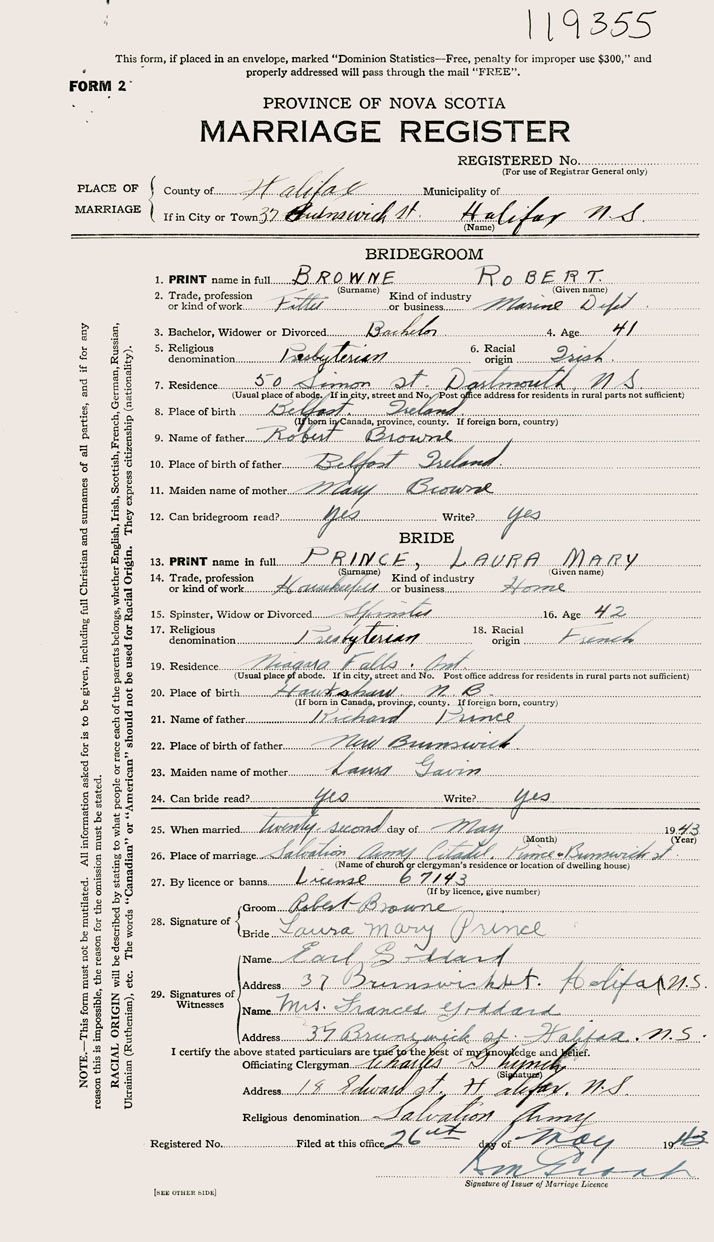 119355
This form, if placed in an envelope, marked “Dominion Statistics—Free, penalty for improper use $300,” and
properly addressed will pass through the mail “FREE”.
FORM 2
PROVINCE OF NOVA SCOTIA
MARRIAGE REGISTER
REGISTERED No.
(For use of Registrar General only)
PLACE OF MARRIAGE
County of Halifax Municipality of
If in City or Town 37 Brunswich St. Halifax N.S.
(Name)
BRIDEGROOM
1. PRINT name in full BROWNE ROBERT.
(Surname) (Given name)
2. Trade, profession or kind of work Fitter Kind of industry or business Marine Dept.
3. Bachelor, Widower or Divorced Bachelor 4. Age 41
5. Religious denomination Presbyterian 6. Racial origin Irish.
7. Residence 50 Simon St. Dartmouth, N S
(Usual place of abode. If in city, street and No. Post office address for residents in rural parts not sufficient)
8. Place of birth Belfast. Ireland
(If born in Canada, province, county. If foreign born, country)
9. Name of father Robert Browne
10. Place of birth of father Belfast Ireland.
11. Maiden name of mother Mary Browne
12. Can bridegroom read? Yes Write? Yes
BRIDE
13. PRINT name in full PRINCE, LAURA MARY
(Surname) (Given name)
14. Trade, profession or kind of work Housekeeper Kind of industry or business Home
15. Spinster, Widow or Divorced Spinster 16. Age 42
17. Religious denomination Presbyterian 18. Racial origin French
19. Residence Niagara Falls. Ont.
(Usual place of abode. If in city, street and No. Post office address for residents in rural parts not sufficient)
20. Place of birth Hawkshaw N.B.
(If born in Canada, province, county. If foreign born, country)
21. Name of father Richard Prince
22. Place of birth of father New Brunswick
23. Maiden name of mother Laura Gavin
24. Can bride read? Yes Write? Yes
25. When married twenty-second day of May 1943
(Month) (Year)
26. Place of marriage Salvation Army Citadel, Prince & Brunswick St.
(Name of church or clergyman's residence or location of dwelling house)
27. By licence or banns License 67143
(If by licence, give number)
28. Signature of
Groom Robert Browne
Bride Laura Mary Prince
29. Signatures of Witnesses
Name Earl Goddard
Address 37 Brunswick St. Halifax N.S.
Name Mrs. Frances Goddard
Address 37 Brunswick St. Halifax. N.S.
I certify the above stated particulars are true to the best of my knowledge and belief.
Officiating Clergyman Charles
(Signature)
Address 18 Edward St. Halifax. N.S.
Religious denomination Salvation Army
Registered No. Filed at this office 26 day of May 1943
Signature of Issuer of Marriage Licence
[SEE OTHER SIDE]
NOTE.—This form must not be mutilated. All information asked for is to be given, including full Christian and surnames of all parties, and if for any
reason this is impossible, the reason for the omission must be stated.
RACIAL ORIGIN will be described by stating to what people or race each of the parents belongs, whether English, Irish, Scottish, French, German, Russian,
Ukrainian (Ruthenian), etc. The words “Canadian” or “American” should not be used for Racial Origin. They express citizenship (nationality).